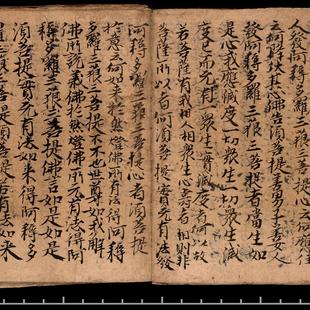 人發阿耨多羅三藐三菩提心云何應住
云何降伏其心佛告須菩提善男子善女人
發阿耨多羅三藐三菩提者當生如
是心我應滅度一切衆生一切衆生滅
度已而无有一衆生實滅度者何以故
若菩薩有我相人相衆生相壽者相則非
菩薩所以者何須菩提實无有法發
阿耨多羅三藐三菩提心者須菩提
於意云何如來於然燈佛所有法得阿耨
多羅三藐三菩提不不也世尊如我解
佛所說義佛於然燈佛所无有法得阿
耨多羅三藐三菩提佛言如是如是
須菩提實无有法如來得阿耨多
羅三藐三菩提須菩提若有法如來